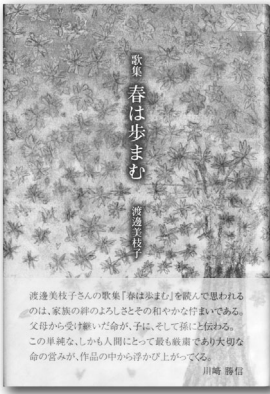 歌集 春は歩まむ
渡邊美枝子
渡邊美枝子さんの歌集『春は歩まむ』を読んで思われる
のは、家族の絆のよろしさとその和やかな佇まいである。
父母から受け継いだ命が、子に、そして孫にと伝わる。
この単純な、しかも人間にとって最も厳粛であり大切な
命の営みが、作品の中から浮かび上がってくる。
川﨑 勝信